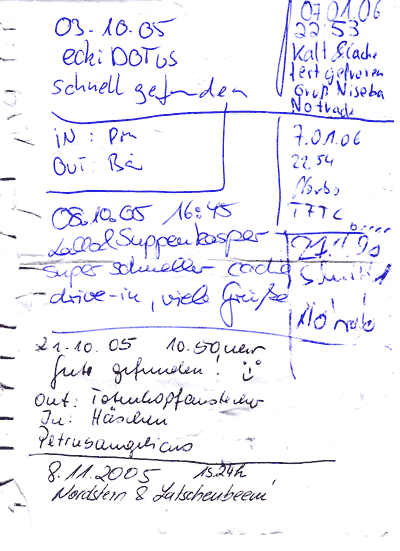 03.10.05
ecki DOTUS
schnell gefunden
IN: Pm
OUT: Bä
08.10.05 16:45
Lalla & Suppenkasper
super schneller cache
drive-in, viele Grüße
21.10.05 10.50 Uhr
Gute gefunden!
Out: Totenkopfanstecker
In: Häschen
8.11.2005 15.24h
Nordstern &
07.01.06
22 53
Kalt & Cache
fest gefroren
Gruß Niseba
No trade
7.01.06
22.54
Norbo
TFTC
No trade